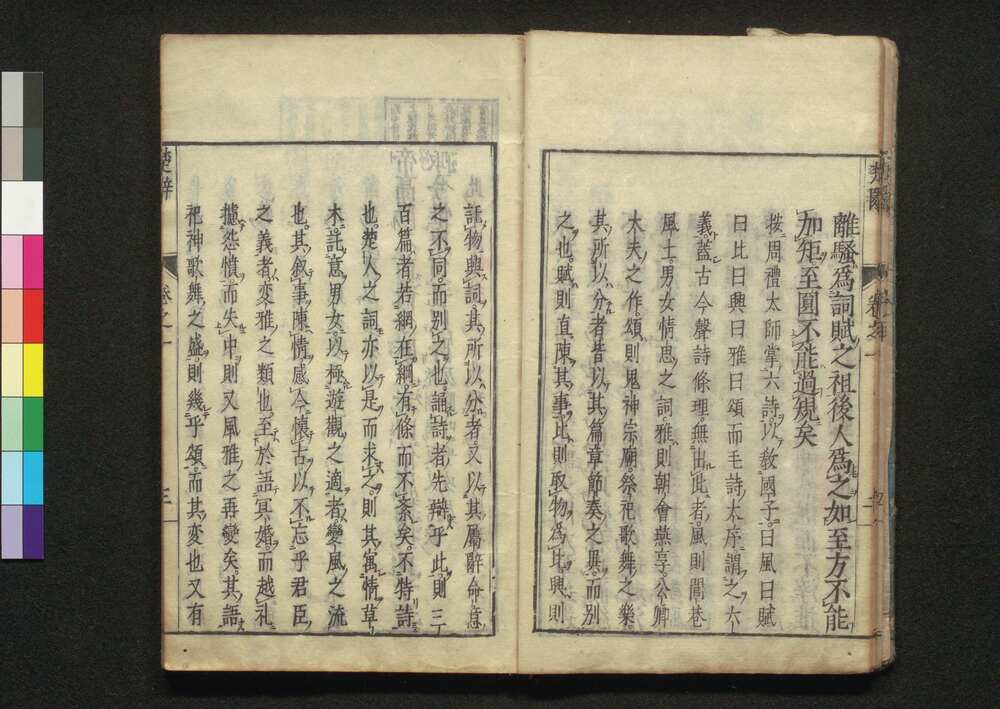 離騷爲詞賦之祖後人爲之如至方不能
加矩至圓不能過規矣
按周禮太師掌六詩以敎國子曰風曰賦
曰比曰興曰雅曰頌而毛詩大序謂之六
義蓋古今聲詩條理無出此者風則閭巷
風土男女情思之詞雅則朝會燕享公卿
大夫之作頌則鬼神宗廟祭祀歌舞之樂
其所以分者皆以其篇章節奏之異而別
之也賦則直陳其事比則取物爲比興則
託物興詞其所以分者又以其屬辭命意
之不同而別之也誦詩者先辯乎此則三
百篇者若網在綱有條而不紊矣不特詩
也楚人之詞亦以是而求之則其寓情草
木託意男女以極遊觀之適者變風之流
也其叙事陳情感今懷古以不忘乎君臣
之義者変雅之類也至於語冥婚而越礼
攄怨憤而失中則又風雅之再變矣其語
祀神歌舞之盛則幾乎頌而其変也又有
楚辭
卷之一
三